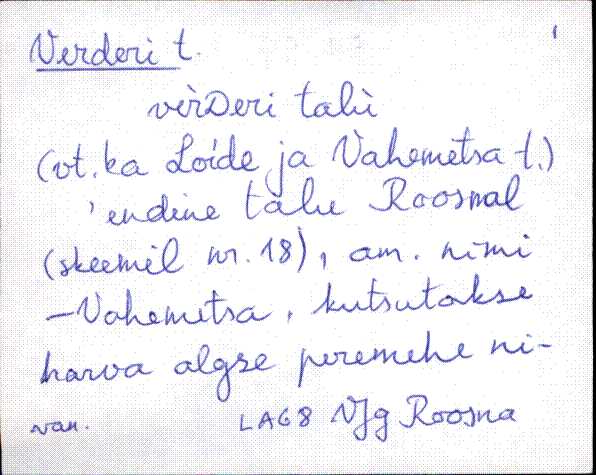 Verderi t.
vèrDeri talù
(vt. ka Loide ja Vahemetsa t.)
'endine talu Roosnal
(skeemil nr. 18), am. nimi
-Vahemetsa, kutsutakse
harva algse peremehe ni-
van. LA68 VJg Roosna